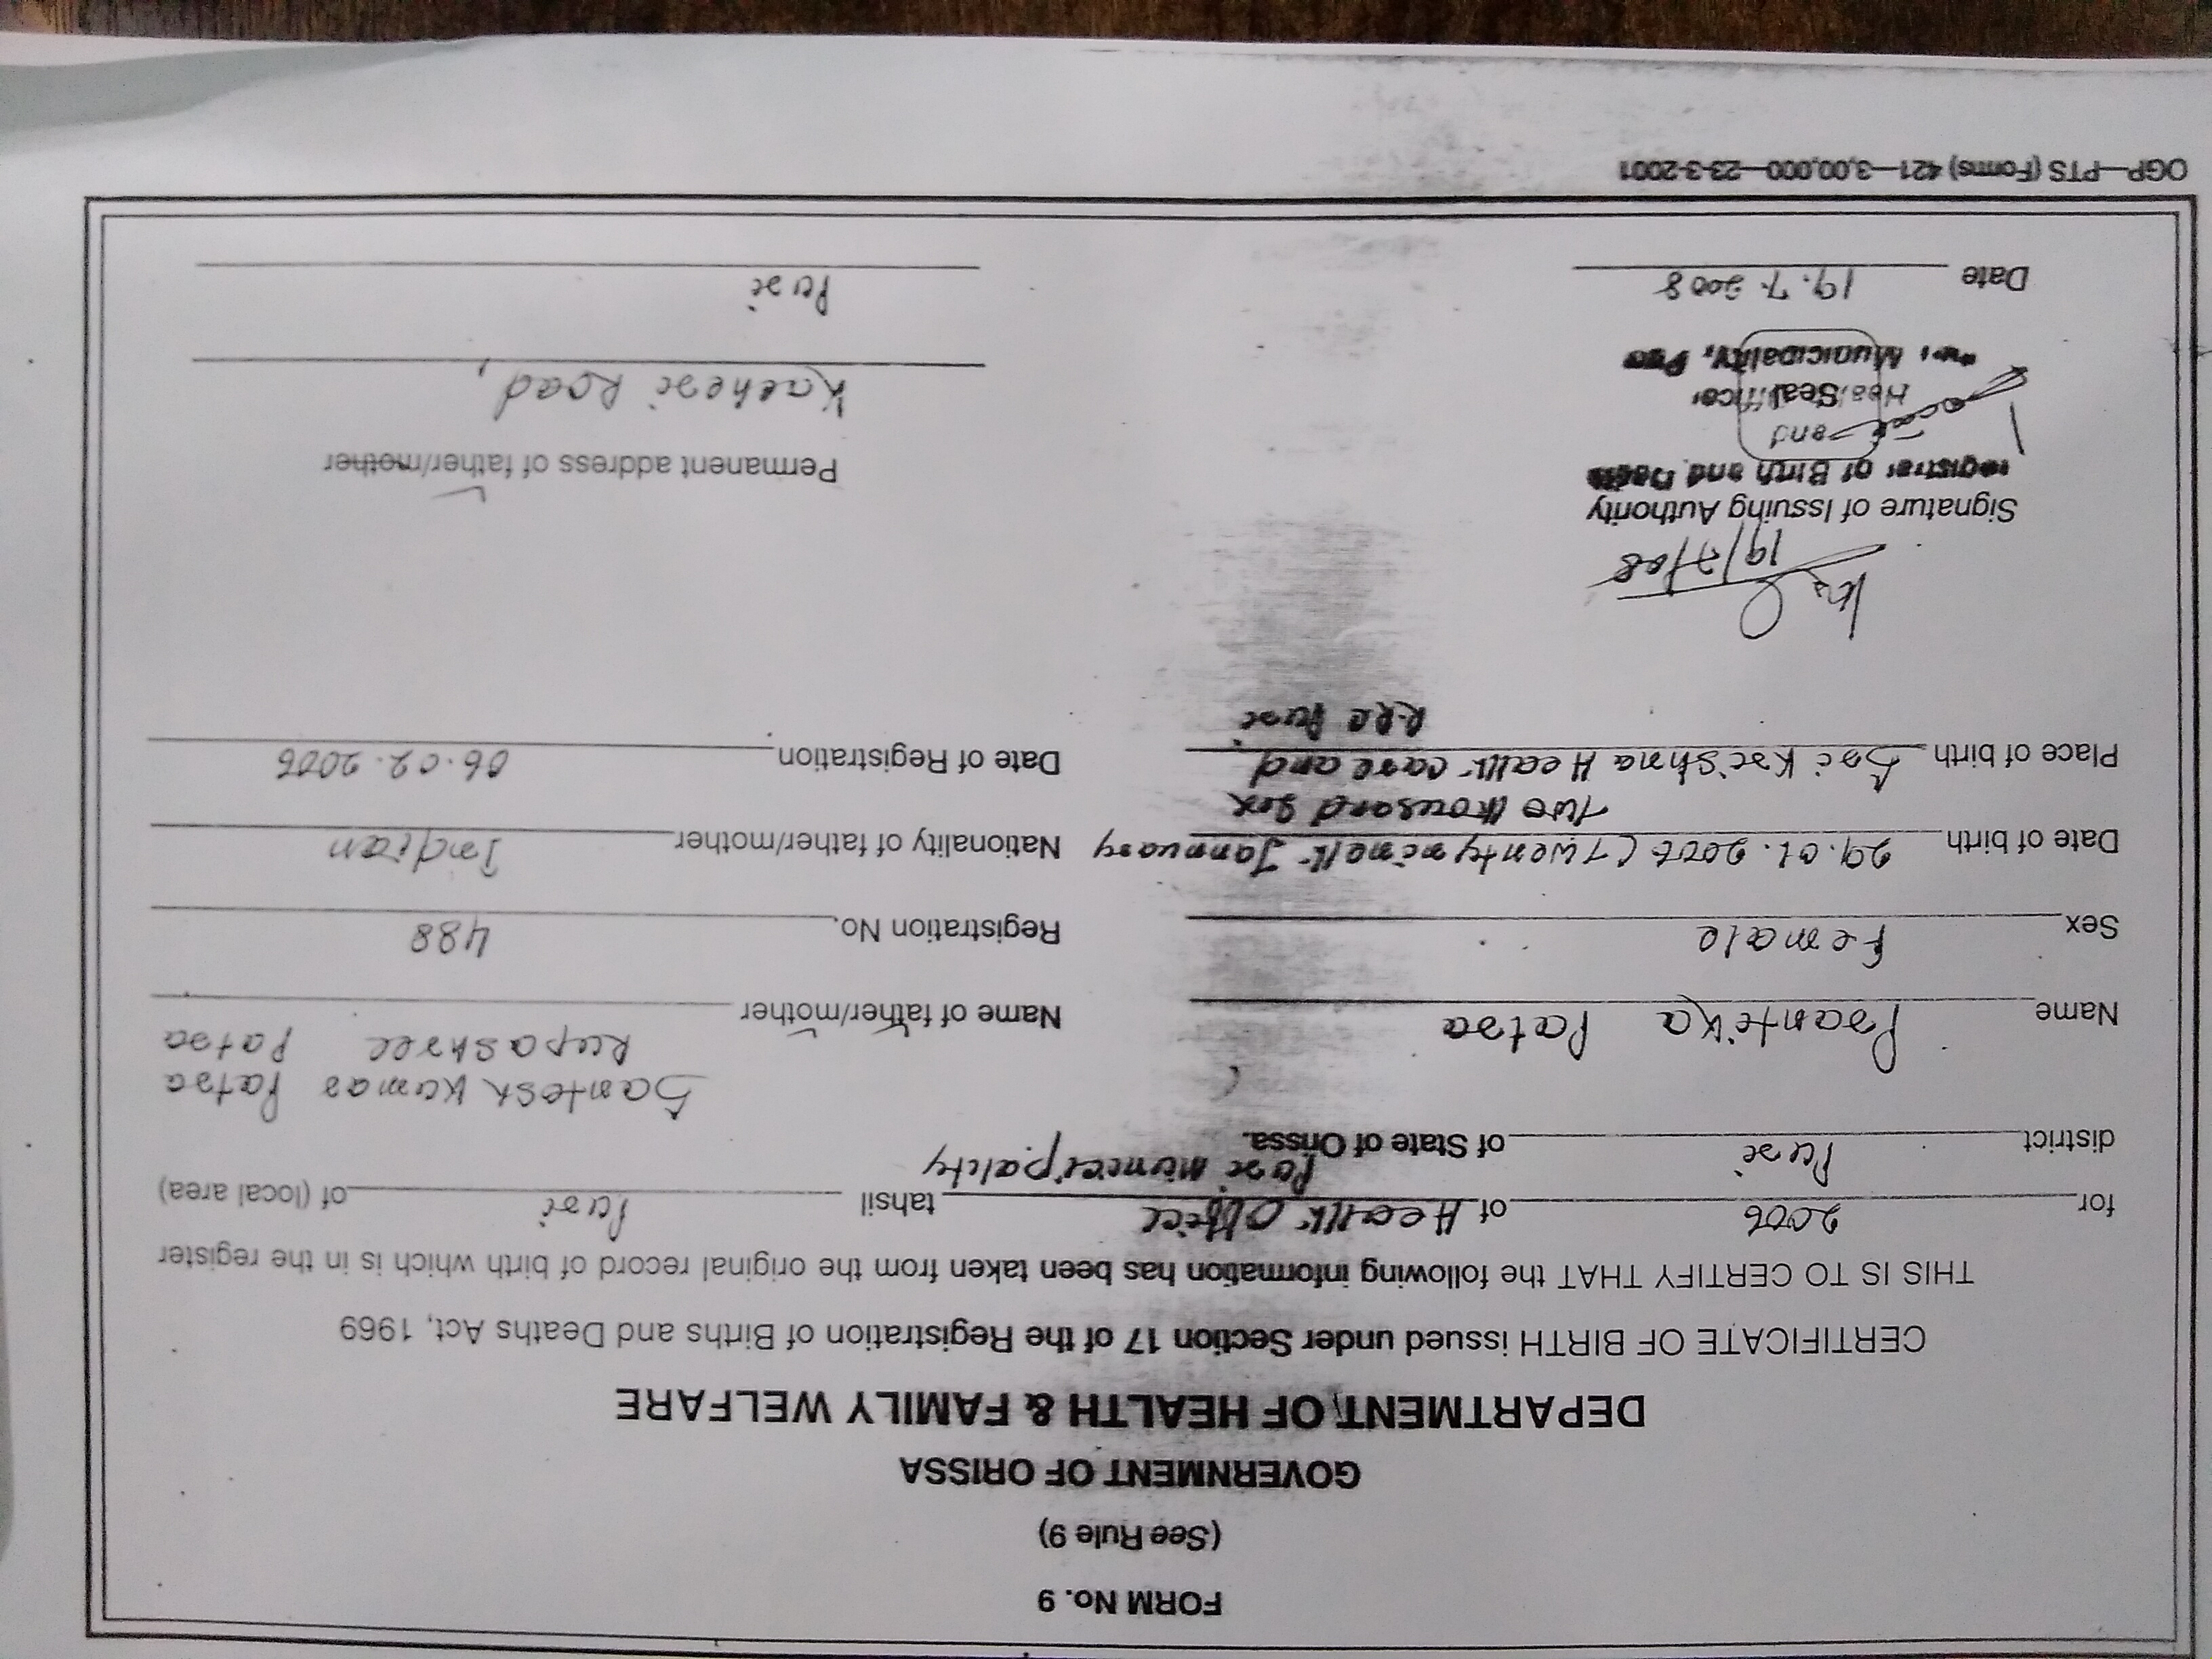 FORM No. 9
(See Rule 9)
GOVERNMENT OF ORISSA
DEPARTMENT OF HEALTH & FAMILY WELFARE
CERTIFICATE OF BIRTH issued under Section 17 of the Registration of Births and Deaths Act, 1969
THIS IS TO CERTIFY THAT the following information has been taken from the original record of birth which is in the register
for 2006 of Health Office tahsil Puri of (local area)
Puri Municipality
district Puri of State of Orissa.
Name Prantika Patra
Santosh Kumar Patra
Rupashree Patra
Name of father/mother
Sex Female
Registration No. 488
Date of birth 29.01.2006 (Twenty nineth January
two thousand Six
Nationality of father/mother Indian
Place of birth Sri Krishna Health care and
Puri
Date of Registration 06.02.2006
19/7/08
Signature of Issuing Authority
Registrar of Birth and Death
and
Seal
Health Officer
Municipality, Puri
Date 19.7.2008
Permanent address of father/mother
Kacheri Road,
Puri
OGP—PTS (Forms) 421—3,00,000—23-3-2001